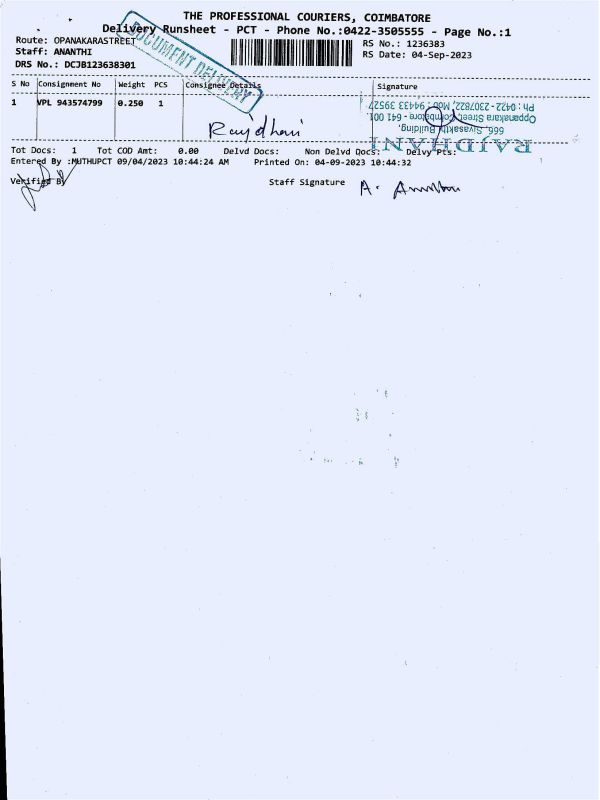 THE PROFESSIONAL COURIERS, COIMBATORE
Delivery Runsheet - PCT - Phone No.:0422-3505555 - Page No.:1
Route: OPANAKARASTREET
RS No.: 1236383
Staff: ANANTHI
RS Date: 04-Sep-2023
DRS No.: DCJB123638301
DOCUMENT DELIVERY
S No Consignment No Weight PCS Consignee Details Signature
1 VPL 943574799 0.250 1
Rajdhani
RAJDHANI
666, Sivasakthi Building,
Oppanakara Street, Coimbatore - 641 001.
Ph : 0422 - 2307822, Mob : 94433 39527
Tot Docs: 1 Tot COD Amt: 0.00 Delvd Docs: Non Delvd Docs: Delvy Pts:
Entered By :MUTHUPCT 09/04/2023 10:44:24 AM Printed On: 04-09-2023 10:44:32
Verified By
Staff Signature A.